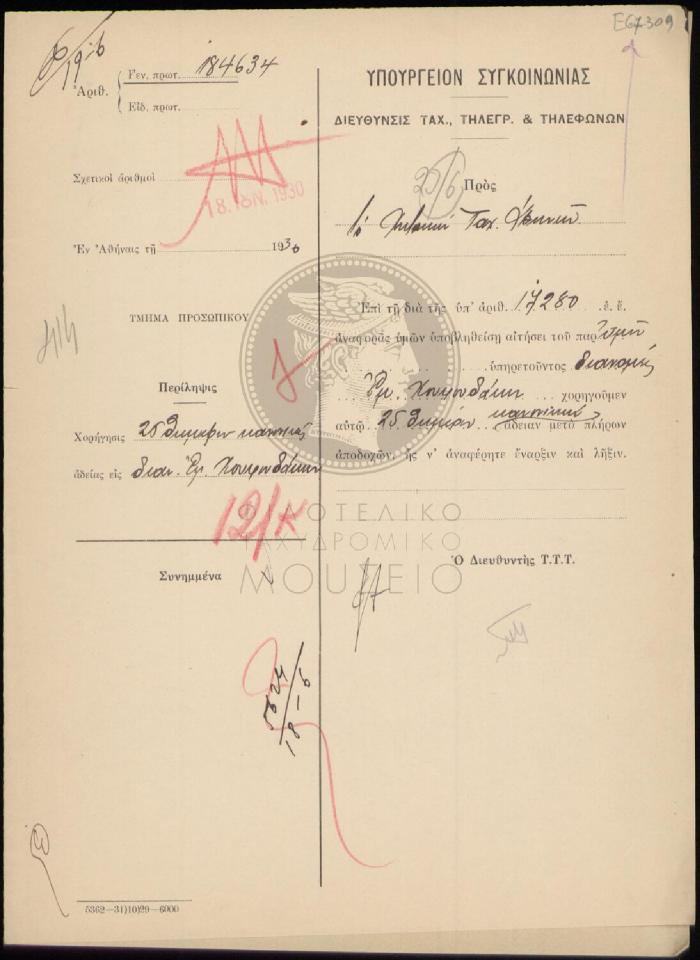 E67309
19/6
Ἀριθ.
Γεν. πρωτ. 184634
Εἰδ. πρωτ.
Σχετικοὶ ἀριθμοὶ
18. ΙΟΥΝ. 1930
Ἐν Ἀθήναις τῇ 1930
ΤΜΗΜΑ ΠΡΟΣΩΠΙΚΟΥ
Περίληψις
Χορήγησις 25θημέρου κανονικῆς
ἀδείας εἰς διαν. Ἐμ.
12/Κ
Συνημμένα
18-6
5362—31)10)29—6000
ΥΠΟΥΡΓΕΙΟΝ ΣΥΓΚΟΙΝΩΝΙΑΣ
ΔΙΕΥΘΥΝΣΙΣ ΤΑΧ., ΤΗΛΕΓΡ. & ΤΗΛΕΦΩΝΩΝ
20/6
Πρὸς
Ταχ.
Ἐπὶ τῇ διὰ τῆς ὑπ' ἀριθ. 17280 ἐ. ἔ.
ἀναφορᾶς ὑμῶν ὑποβληθείσῃ αἰτήσει τοῦ παρ' ὑμῖν
ὑπηρετοῦντος διανομέως
Ἐμ. χορηγοῦμεν
αὐτῷ 25θήμερον κανονικὴν ἄδειαν μετὰ πλήρων
ἀποδοχῶν, ἧς ν' ἀναφέρητε ἔναρξιν καὶ λῆξιν.
Ὁ Διευθυντὴς Τ.Τ.Τ.
ΦΙΛΟΤΕΛΙΚΟ
ΤΑΧΥΔΡΟΜΙΚΟ
ΜΟΥΣΕΙΟ